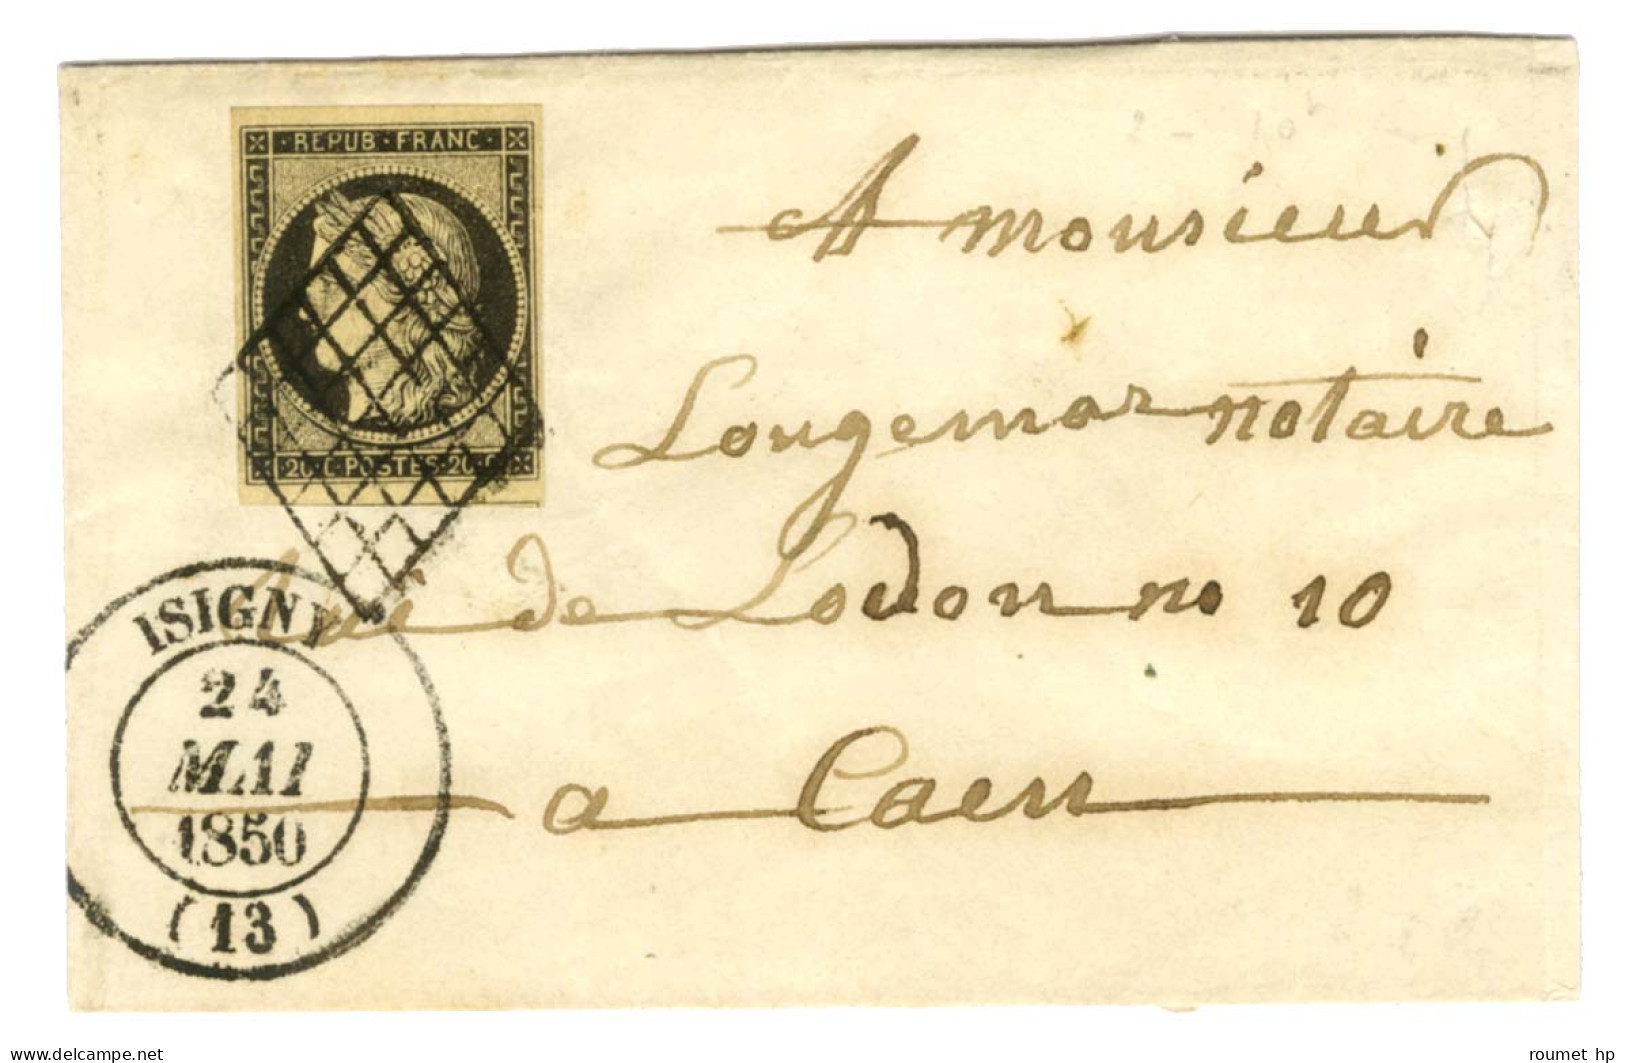 REPUB · FRANC ·
20 · C · POSTES · 20 · C
A monsieur
Lougemar notaire
rui de Lodon no 10
a Caen
ISIGNY
24
MAI
1850
(13)
www.delcampe.net
roumet hp